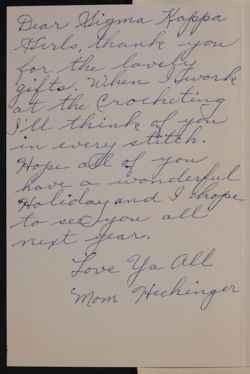 Dear Sigma Kappa
Girls, thank you
for the lovely
gifts. When I work
at the Crocheting
I'll think of you
in every stitch.
Hope all of you
have a wonderful
Holiday and I hope
to see you all
next year.
Love Ya All
Mom Hechinger